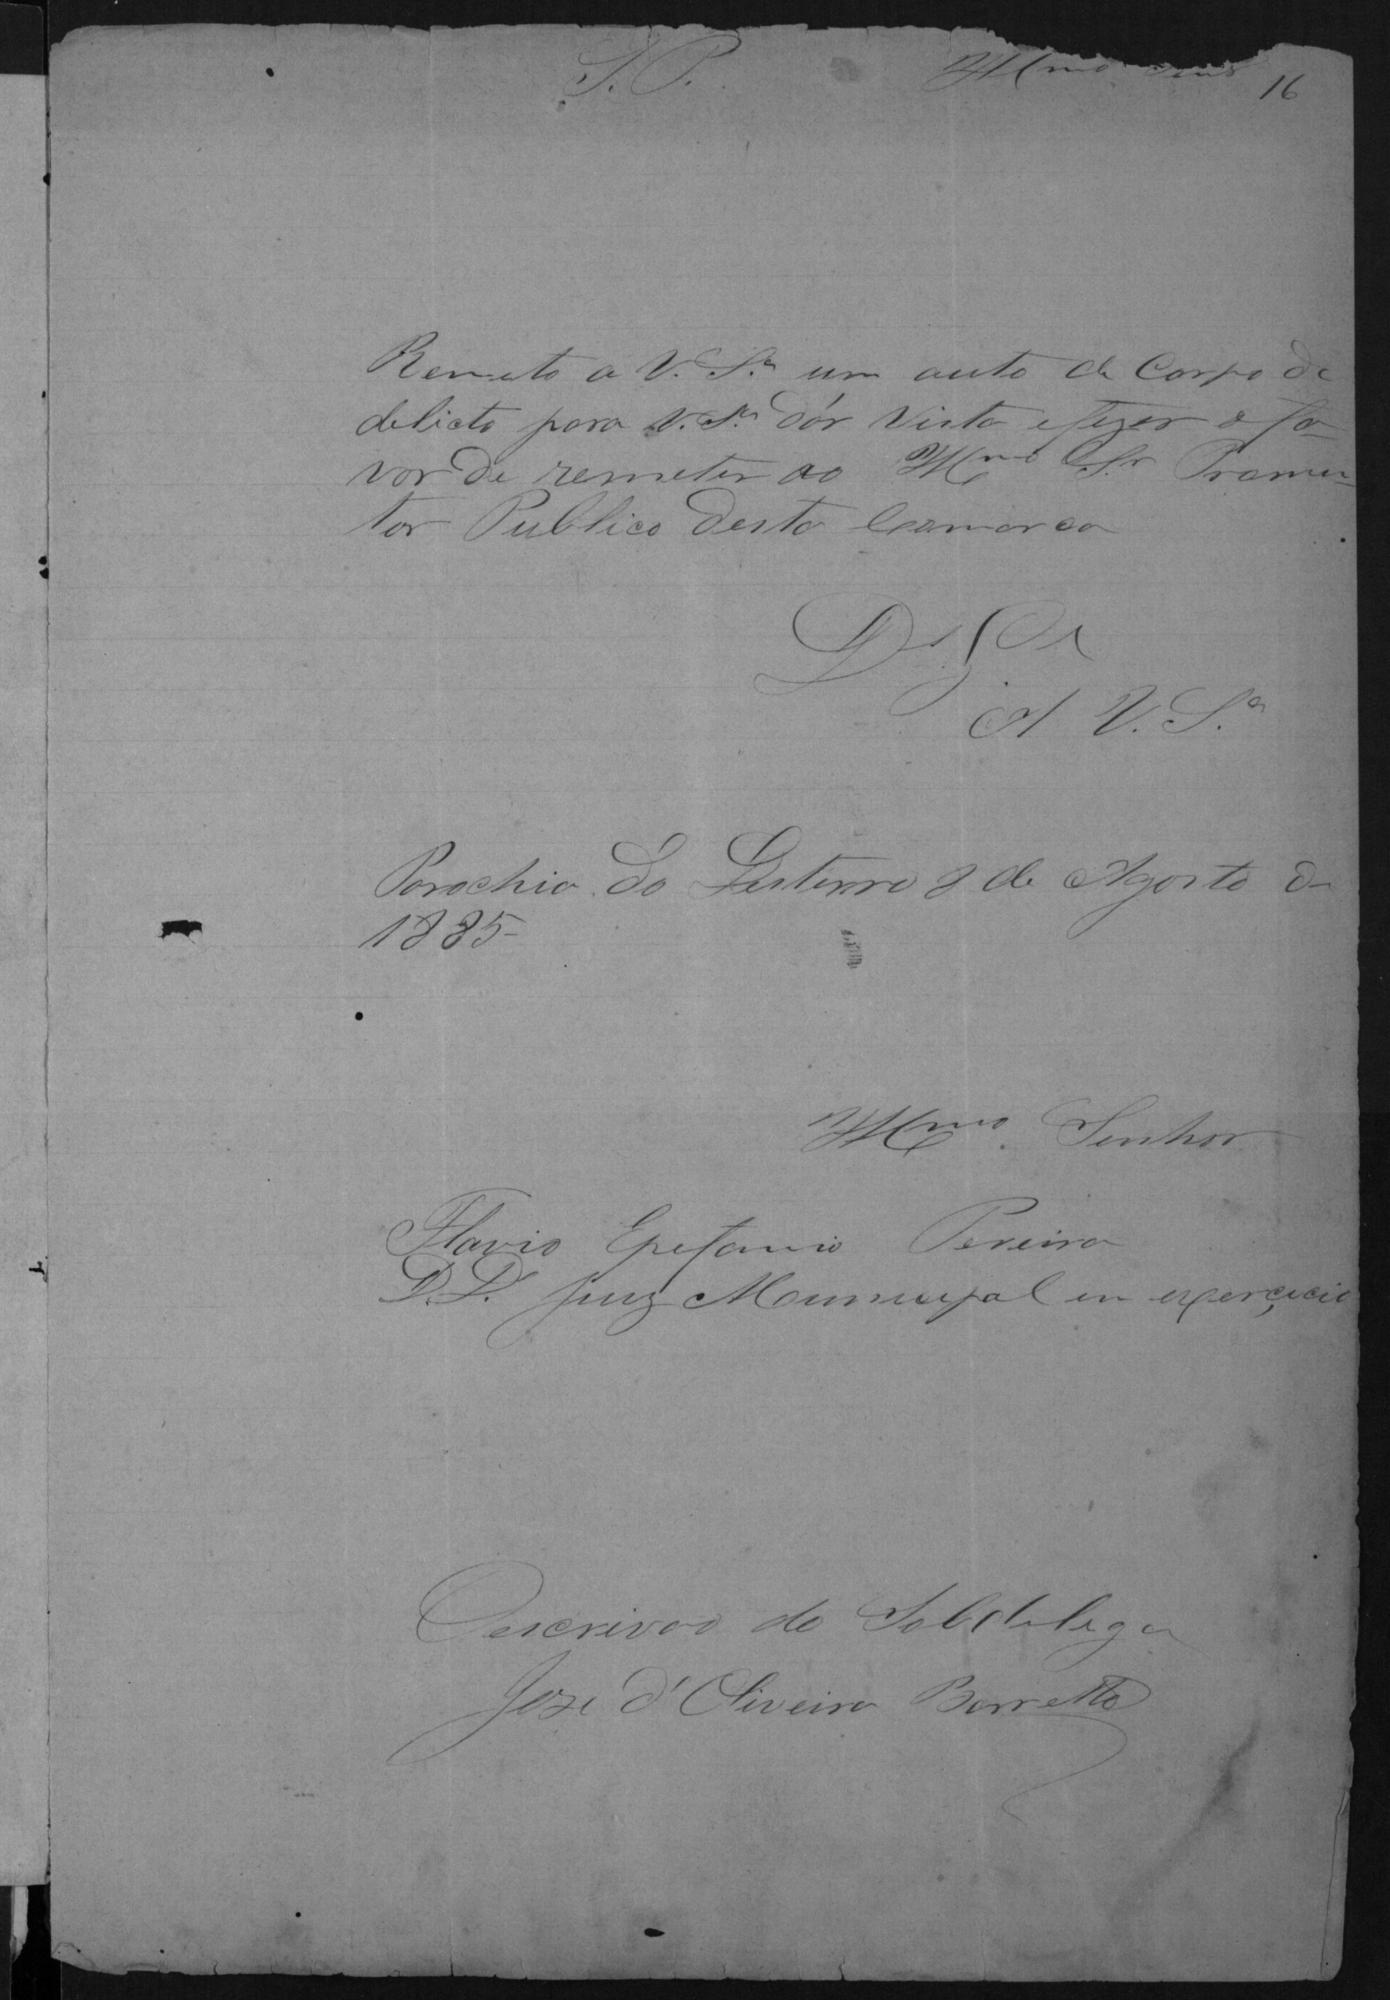 S. P. Illmo Senr
16
Remeto a V. Sª um auto de Corpo de
delicto para V. Sª dár Vista e fazer o fa-
vor de remeter ao Illmo Sr Promu-
tor Publico desta Comarca
A V. Sª
Parochia do Desterro 8 de Agosto de
1885-
Illmo. Senhor
Flavio Epefanio Pereira
D.D. Juiz Municipal em exercicio
Oescrivao do Sobdelega
Joze d'Oliveira Barretto